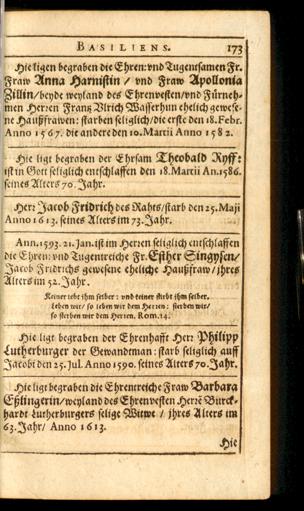 BASILIENS. 173
Hie ligen begraben die Ehren: vnd Tugentsamen Fr.
Fraw Anna Harnistin / vnd Fraw Apollonia
Zillin / beyde weyland des Ehrenvesten / vnd Fürneh-
men Herren Frantz Vlrich Wasserhun ehelich gewese-
ne Haußfrawen: starben seliglich / die erste den 18. Febr.
Anno 1567. die andere den 10. Martii Anno 1582.
Hie ligt begraben der Ehrsam Theobald Ryff:
ist in Gott seliglich entschlaffen den 18. Martii An. 1586.
seines Alters 70. Jahr.
Herr Jacob Fridrich des Rahts / starb den 25. Maji
Anno 1613. seines Alters im 73. Jahr.
Ann. 1593. 21. Jan. ist im Herren seliglich entschlaffen
die Ehren: vnd Tugentreiche Fr. Esther Singysen /
Jacob Fridrichs gewesene eheliche Haußfraw / jhres
Alters im 52. Jahr.
Keiner lebt ihm selber: vnd keiner stirbt ihm selber.
Leben wir / so leben wir dem Herren: sterben wir /
so sterben wir dem Herren. Rom. 14.
Hie ligt begraben der Ehrenhafft Herr Philipp
Lutherburger der Gewandtman: starb seliglich auff
Jacobi den 25. Jul. Anno 1590. seines Alters 70. Jahr.
Hie ligt begraben die Ehrenreiche Fraw Barbara
Eßlingerin / weyland des Ehrenvesten Herrē Burck-
hardt Lutherburgers selige Witwe / jhres Alters im
63. Jahr / Anno 1613.
Hie